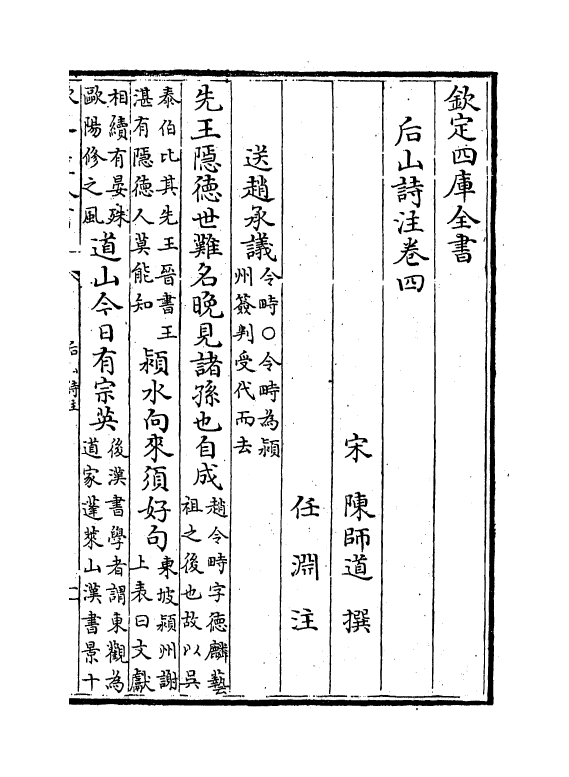 欽定四庫全書
后山詩注卷四
宋　陳師道　撰
任　淵　注
送趙承議令時○令時為潁州簽判受代而去
先王隱德世難名晚見諸孫也自成趙令時字德麟藝祖之後也故以吳
泰伯比其先王晉書王湛有隱德人莫能知潁水向來須好句東坡潁州謝上表曰文獻
相續有晏殊歐陽修之風道山今日有宗英後漢書學者謂東觀為道家蓬萊山漢書景十
后山詩注